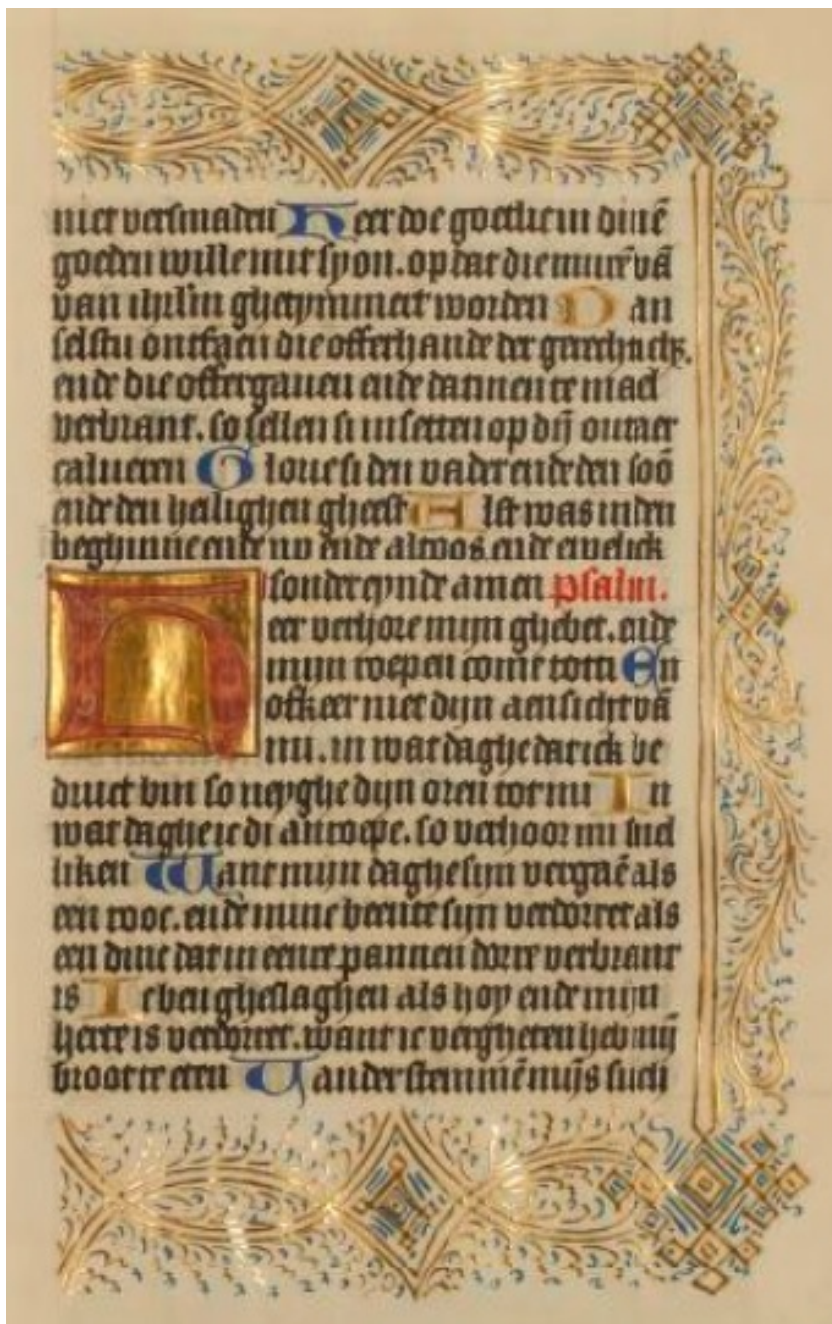 niet versmaden Heer doe goetlic in dinē
goeden wille mit syon. op dat die murē vā
van ihrlm ghetymmert worden Dan
selstu ontfaen die offerhande der gerechticht.
ende die offergauen ende datmen te mael
verbrant. so sellen si in setten op dijn outaer
calueren Glorie si den vader ende den soō
ende den heilighen gheest Alst was inden
beghinne ende nu ende altoos. ende ewelick
sonder eynde amen psalm.
Heer verhore mijn ghebet. ende
mijn roepen come tot ti En
ofkeer niet dijn aensicht vā
mi. in wat daghe dat ick be
druct bin so neyghe dijn oren tot mi In
wat daghe ic di anroepe. so verhoor mi snel
liken Want mijn daghe sijn vergaē als
een rooc. ende mine beente sijn verdorret als
een dinc dat in eenre pannen dorre verbrant
is Ic ben gheslaghen als hoy ende mijn
herte is verdorret. want ic vergheten heb mijn
broot te eten Van der stemmē mijs such